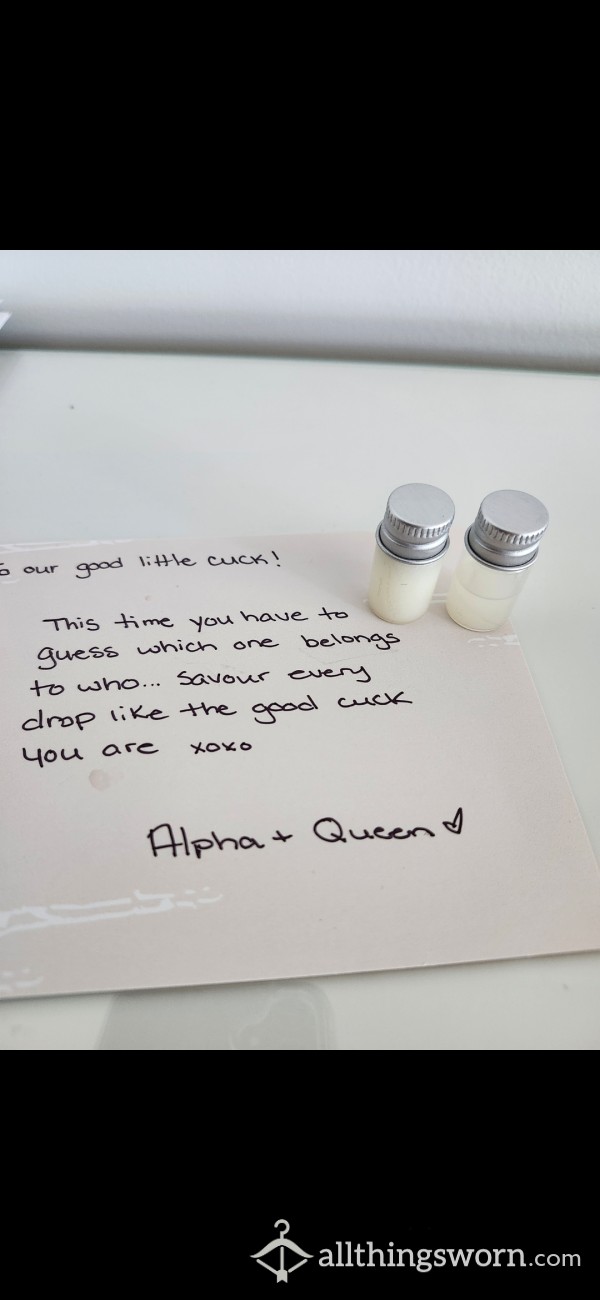 our good little cuck!
This time you have to
guess which one belongs
to who... Savour every
drop like the good cuck
you are xoxo
Alpha + Queen
allthingsworn.com